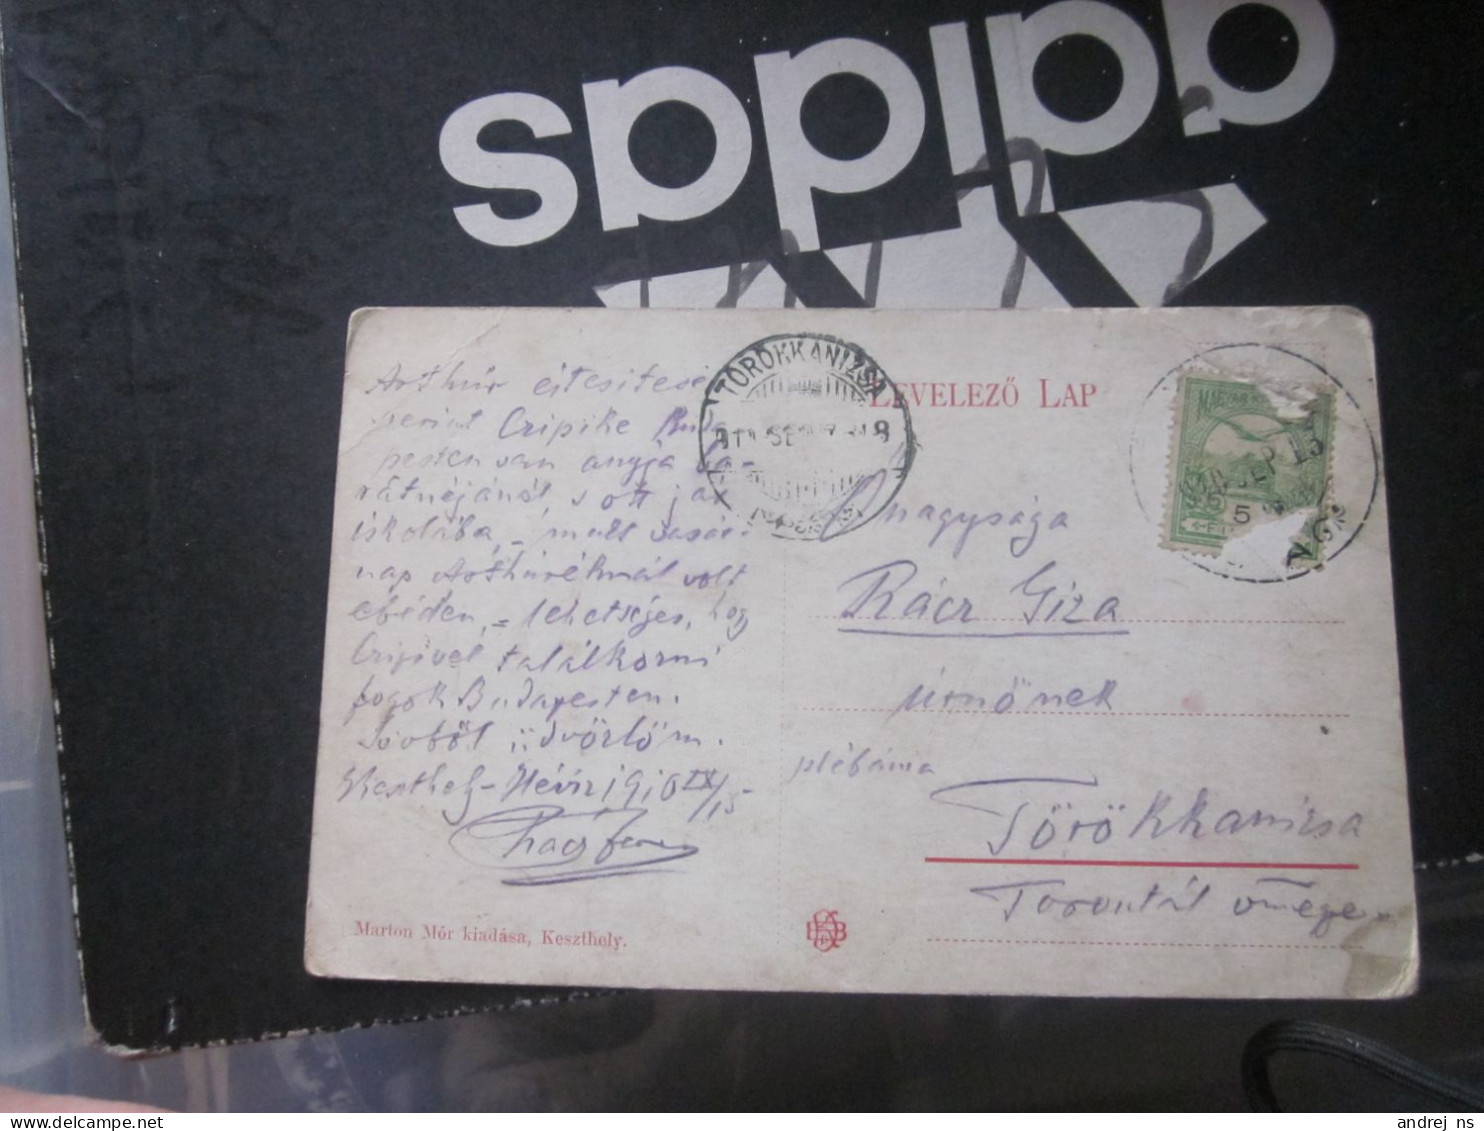 adidas
LEVELEZŐ LAP
TÖRÖKKANIZSA
Arthúr éjtesitese
Czipike Buda-
pesten van anyja ba-
rátnéjánál, s ott jár
iskolába, - mult vasár-
nap Arthúréknál volt
ebéden, = lehetséges, hogy
Czipivel találkozni
fogok Budapesten.
Szivből üdvözlöm.
Keszthely-Hévíz 1910 IX/15
nagysága
Rácz Giza
úrnőnek
plébánia
Törökkanizsa
Torontál vmegye
Marton Mór kiadása, Keszthely.
andrej ns